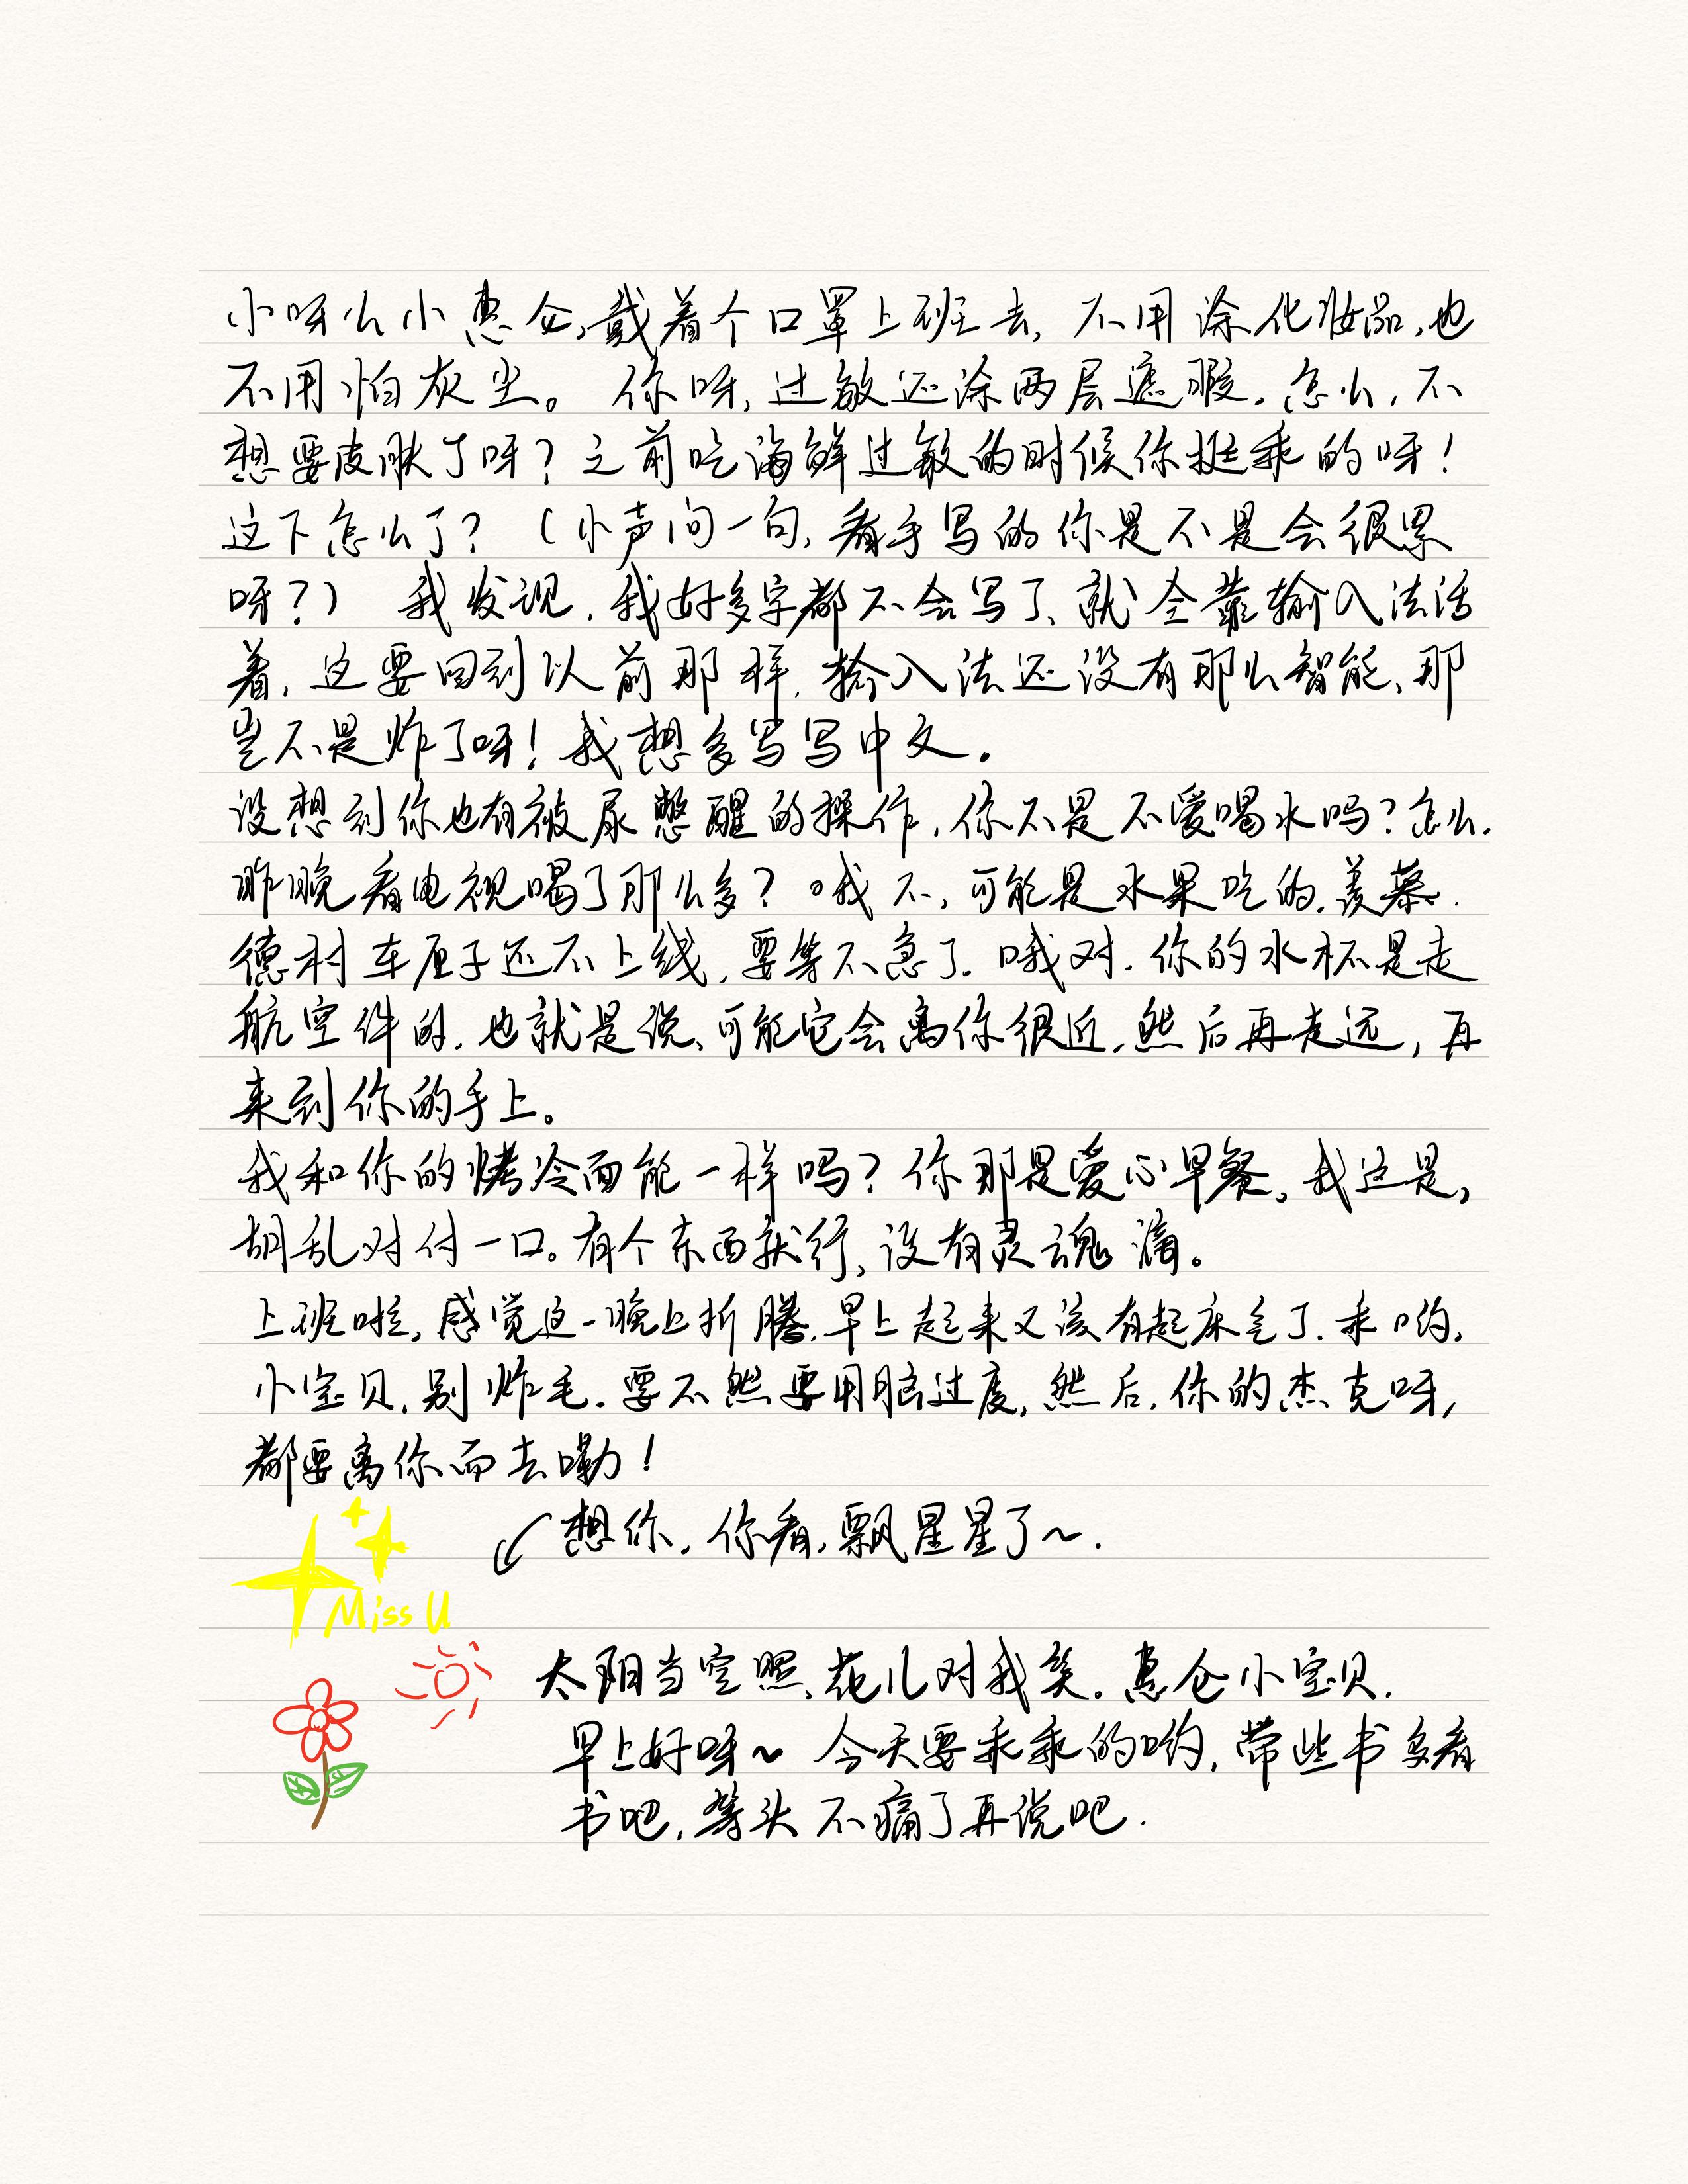 小呀么小惠仑,戴着个口罩上班去,不用涂化妆品,也
不用怕灰尘。你呀,过敏还涂两层遮暇.怎么,不
想要皮肤了呀?之前吃海鲜过敏的时候你挺乖的呀!
这下怎么了?(小声问一句,看手写的你是不是会很累
呀?) 我发现,我好多字都不会写了、就全靠输入法活
着,这要回到以前那样,输入法还没有那么智能、那
岂不是炸了呀!我想多写写中文.
没想到你也有被尿憋醒的操作,你不是不爱喝水吗?怎么.
昨晚看电视喝了那么多?哦不,可能是水果吃的.羡慕.
德村车厘子还不上线,要等不急了.哦对.你的水杯是走
航空件的.也就是说、可能它会离你很近.然后再走远,再
来到你的手上。
我和你的烤冷面能一样吗?你那是爱心早餐,我这是,
胡乱对付一口。有个东西就行、没有灵魂滴。
上班啦,感觉这一晚上折腾.早上起来又该有起床气了.乖哟,
小宝贝,别炸毛.要不然要用脑过度,然后.你的杰克呀,
都要离你而去嘞!
想你,你看,飘星星了~.
Miss U
太阳当空照、花儿对我笑.惠仑小宝贝.
早上好呀~ 今天要乖乖的哟,带些书多看
书吧,等头不痛了再说吧.